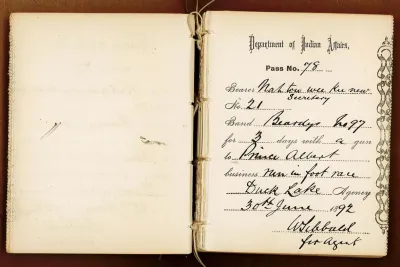 Department of Indian Affairs,
Pass No. 78
Bearer Nah tow wee Kee new
Secretary
No. 21
Band Beardys No 97
for 3 days with a gun
to Prince Albert
business run in foot race
Duck Lake Agency
30th June 1892
W Sibbald
for Agent